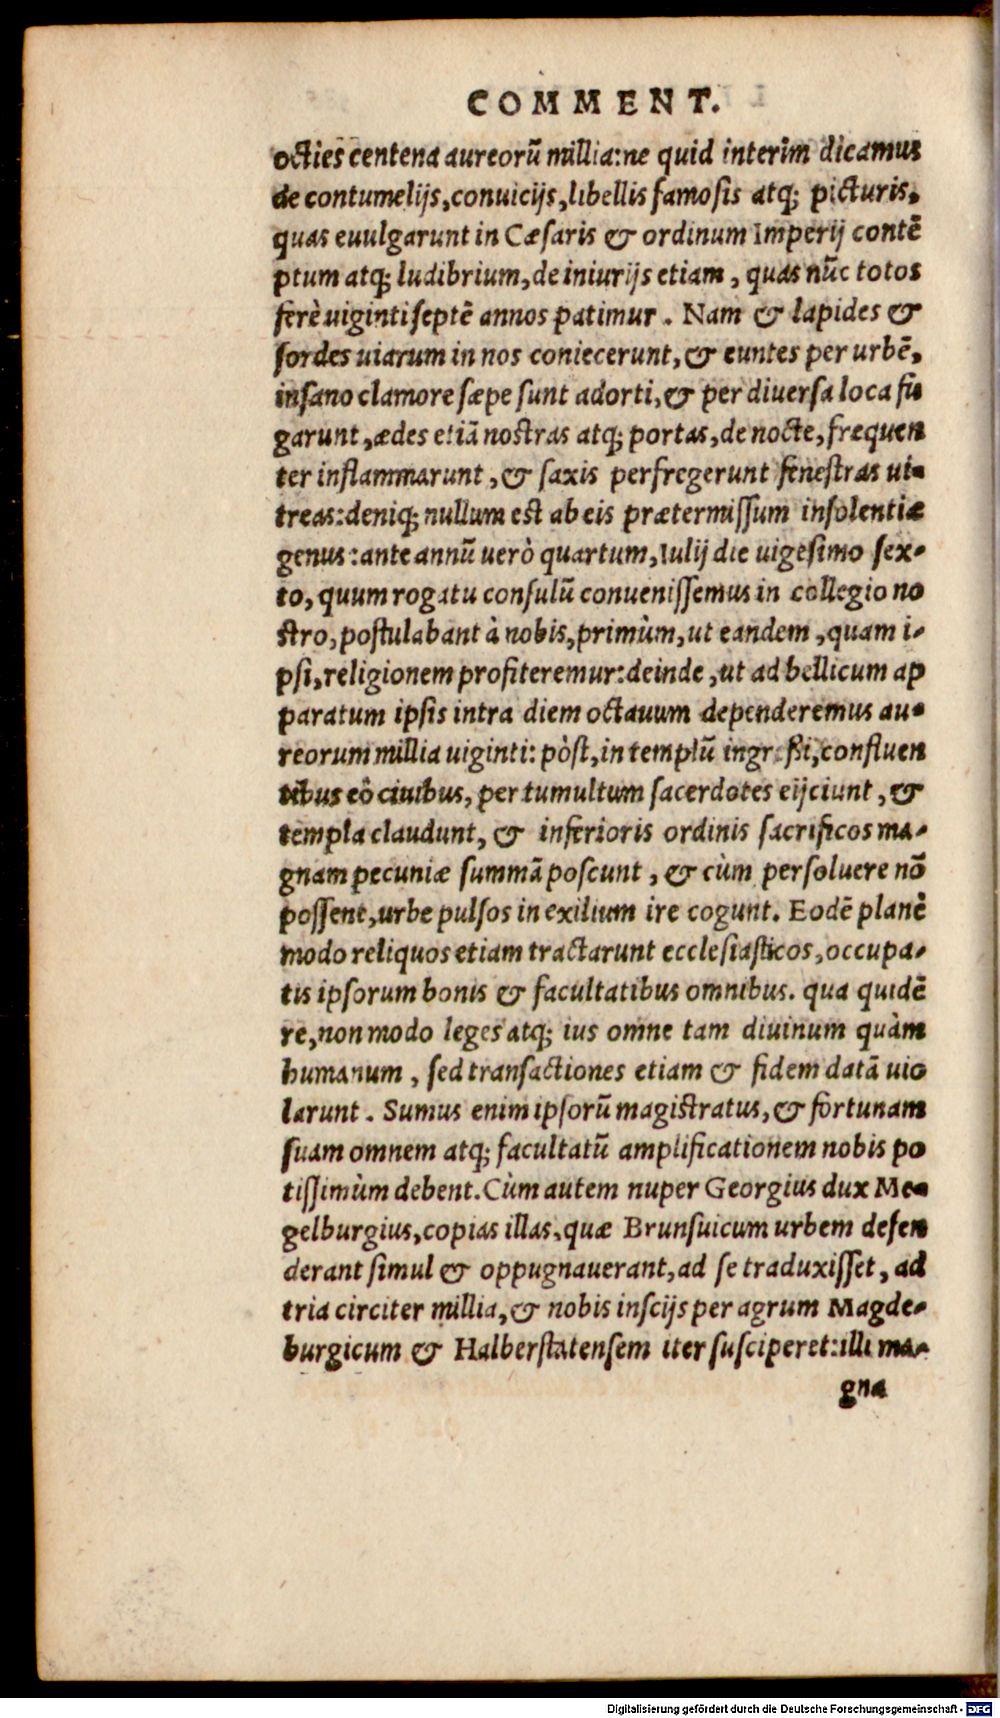 COMMENT.
octies centena aureorū millia:ne quid interim dicamus
de contumelijs, conuicijs, libellis famosis atq; picturis,
quas euulgarunt in Cæsaris & ordinum Imperij contē
ptum atq; ludibrium, de iniurijs etiam, quas nūc totos
ferè uiginti septē annos patimur. Nam & lapides &
sordes uiarum in nos coniecerunt, & euntes per urbē,
insano clamore sæpe sunt adorti, & per diuersa loca fu
garunt, ædes etiā nostras atq; portas, de nocte, frequen
ter inflammarunt, & saxis perfregerunt fenestras ui-
treas: deniq; nullum est ab eis prætermissum insolentiæ
genus: ante annū uerò quartum, Iulij die uigesimo sex-
to, quum rogatu consulū conuenissemus in collegio no
stro, postulabant à nobis, primùm, ut eandem, quam i-
psi, religionem profiteremur: deinde, ut ad bellicum ap
paratum ipsis intra diem octauum dependeremus au-
reorum millia uiginti: pòst, in templū ingressi, confluen
tibus eò ciuibus, per tumultum sacerdotes eijciunt, &
templa claudunt, & inferioris ordinis sacrificos ma-
gnam pecuniæ summā poscunt, & cùm persoluere nō
possent, urbe pulsos in exilium ire cogunt. Eodē planè
modo reliquos etiam tractarunt ecclesiasticos, occupa-
tis ipsorum bonis & facultatibus omnibus. qua quidē
re, non modo leges atq; ius omne tam diuinum quàm
humanum, sed transactiones etiam & fidem datā uio
larunt. Sumus enim ipsorū magistratus, & fortunam
suam omnem atq; facultatū amplificationem nobis po
tissimùm debent. Cùm autem nuper Georgius dux Me-
gelburgius, copias illas, quæ Brunsuicum urbem defen
derant simul & oppugnauerant, ad se traduxisset, ad
tria circiter millia, & nobis inscijs per agrum Magde-
burgicum & Halberstatensem iter susciperet: illi ma-
gna
Digitalisierung gefördert durch die Deutsche Forschungsgemeinschaft - DFG